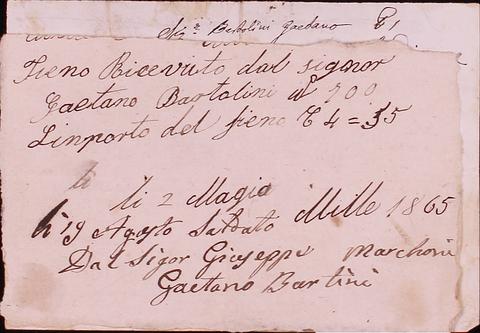 Sig.re Bartolini Gaetano
Fieno Ricevuto dal signor
Gaetano Bartolini 700
Linporto del fieno 4=35
li
li 2 Magio Mille 1865
li 19 Agosto Saldato
Dal Sigor Giuseppe Marchoni
Gaetano Bartini